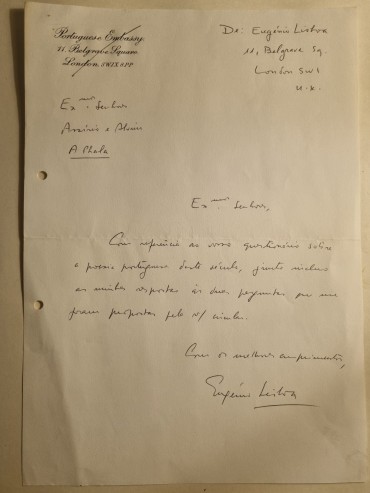 Portuguese Embassy,
11, Belgrave Square,
London, SW1X 8PP
De: Eugénio Lisboa
11, Belgrave Sq.
London SW1
U.K.
Exmos. Senhores
A Phala
Exmos. Senhores,
Com referência ao vosso questionário sobre
a poesia portuguesa deste século, junto incluo
as minhas respostas às duas perguntas que me
foram propostas pela v/ circular.
Com os melhores cumprimentos,
Eugénio Lisboa